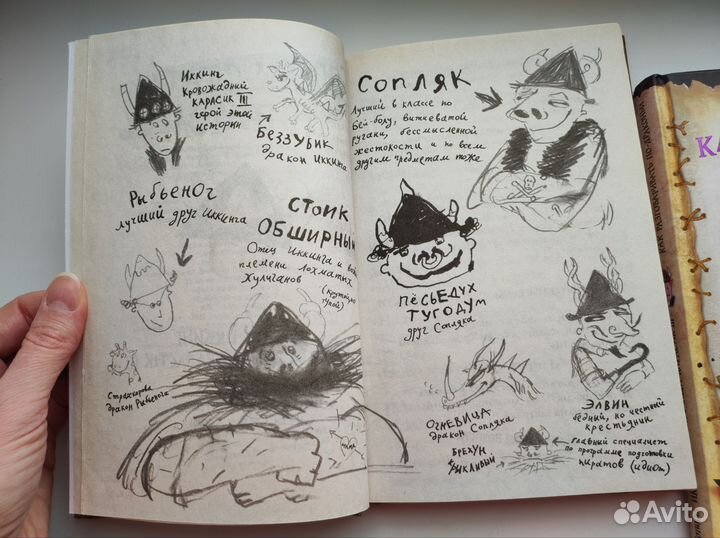 Иккинг
Кровожадний
Карасик III
герой этой
истории
Беззубик
дракон Иккинга
Рыбьеног
лучший друг Иккинга
Стоик
Обширный
Отец Иккинга и вождь
племени Лохматых
Хулиганов
(крутейший
тупой)
Страхкорова
дракон Рыбьенога
мама
Сопляк
Лучший в классе по
Бей-болу, витиеватой
ругани, бессмысленной
жестокости и по всем
другим предметам тоже
Пёсьедух
Тугодум
друг Сопляка
Огневица
дракон Сопляка
Элвин
бедный, но честный
крестьянин
Брехун
Крикливый
главный специалист
по программе подготовки
пиратов (идиот)
Avito